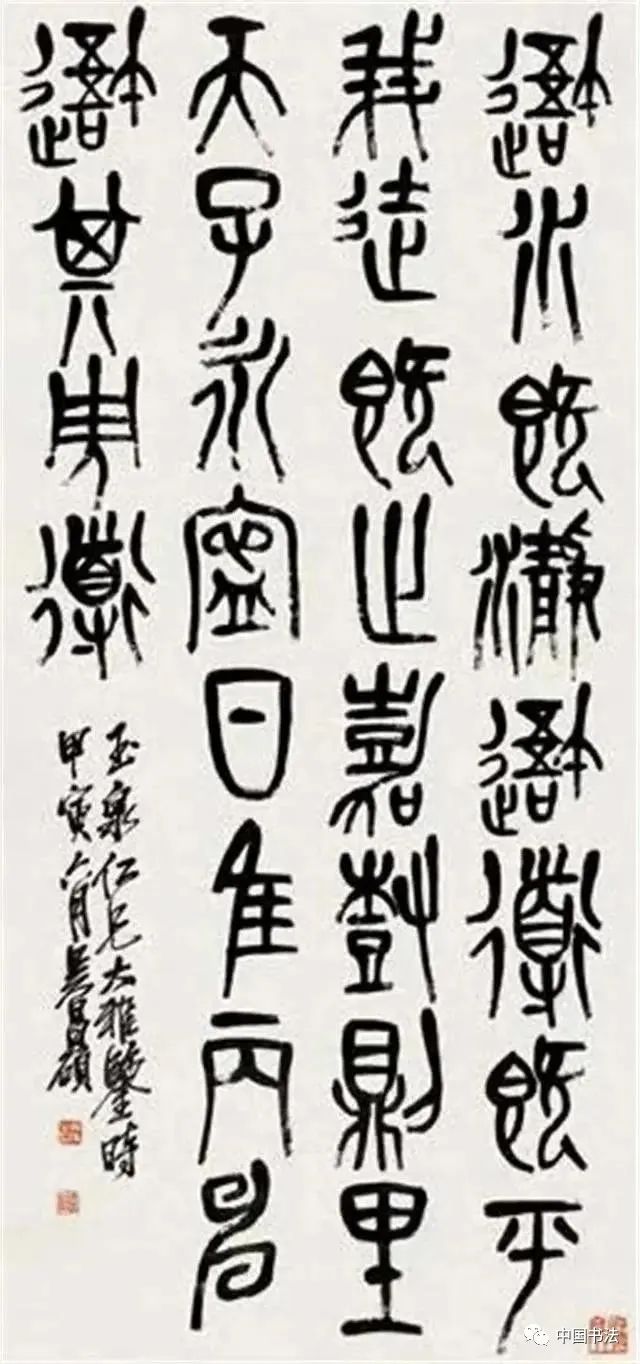 䢔水既瀞䢔導既平
我徒既止嘉尌則里
天子永寧日隹丙申
䢔其用導
玉泉仁兄大雅鑒時
甲寅六月吳昌碩
中国书法